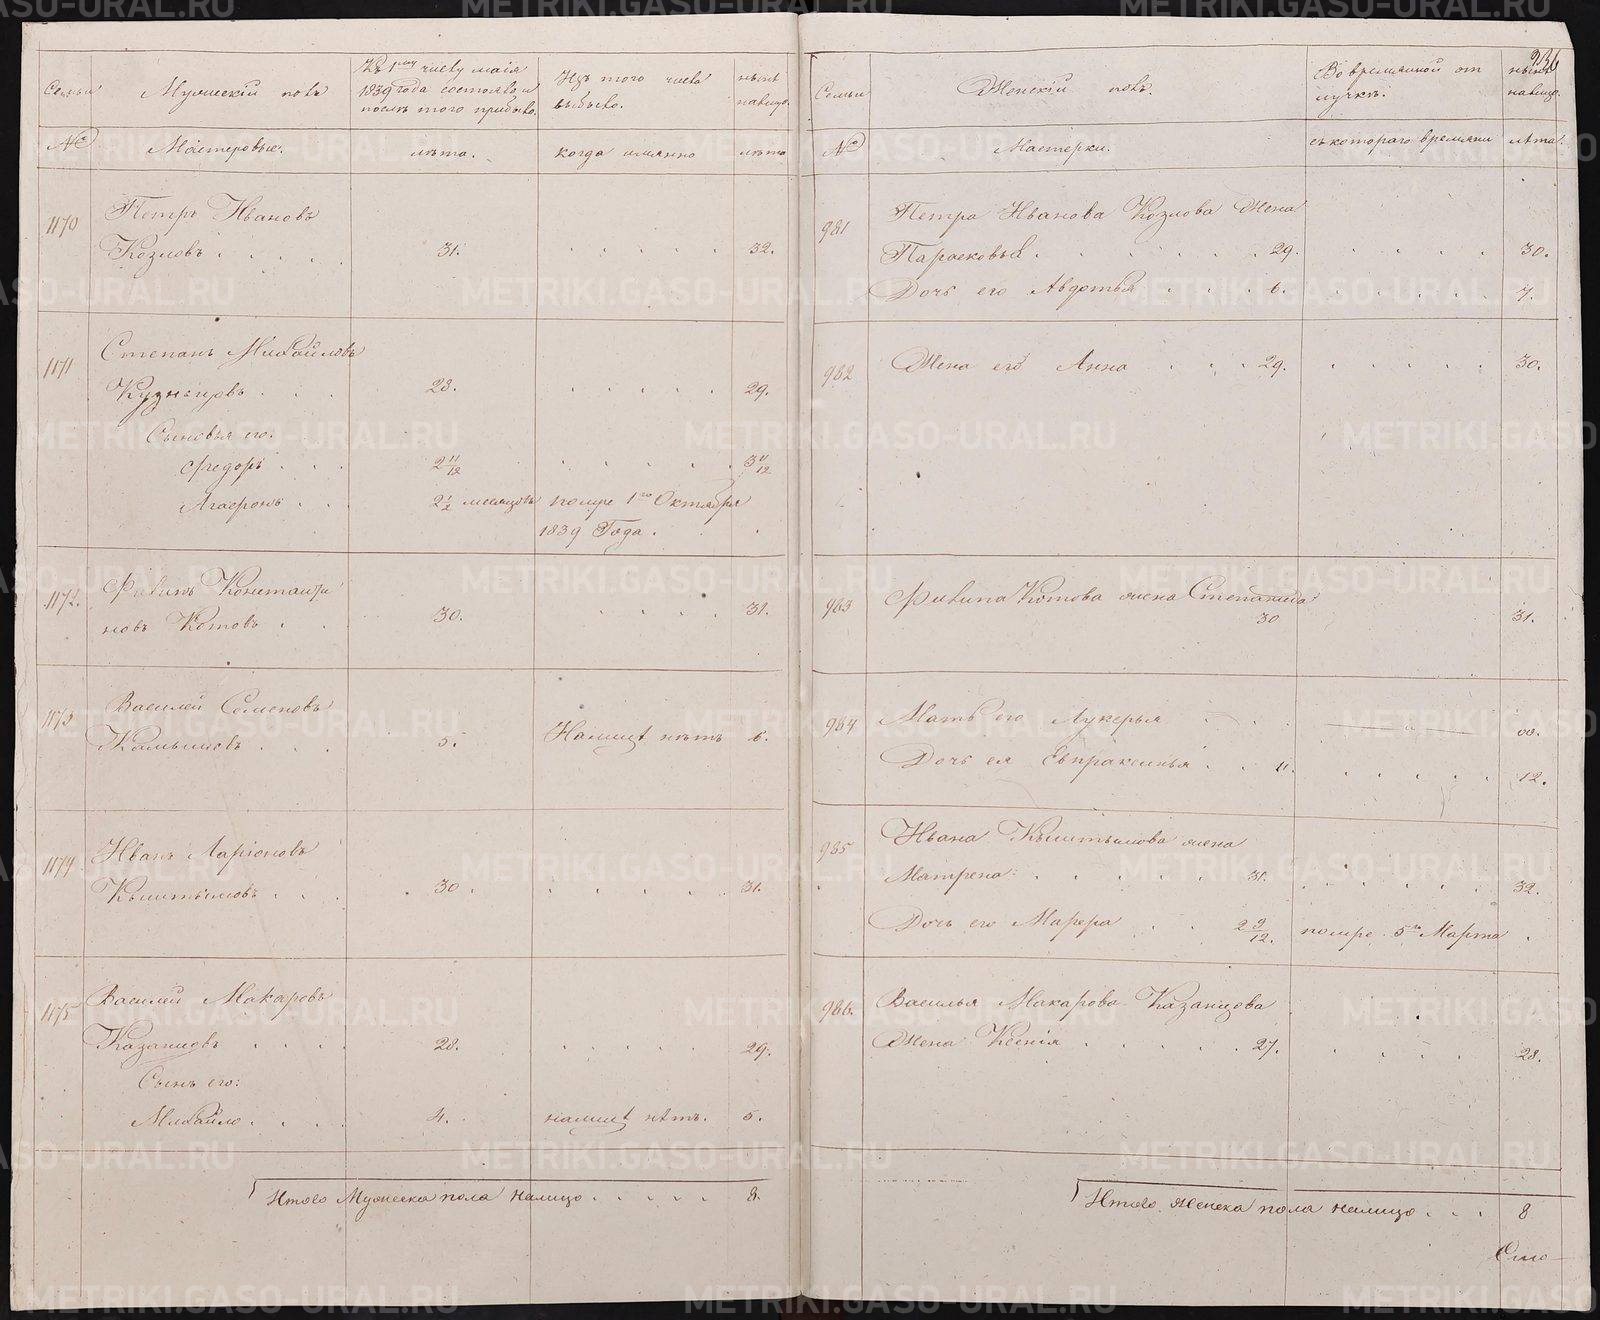 236
Семьи
Мужескiй полъ
Къ 1му числу маiя
1839 года состояло и
послѣ того прибыло.
Изъ того числа
выбыло.
нынѣ
налицо.
№
Мастеровые.
лѣта.
когда имянно
лѣта
1170
Петръ Ивановъ
Козловъ . . . . . 31. . . . . . 32.
1171
Степанъ Михайловъ
Кузнецовъ . . . 28. . . . . . 29.
Сыновья его:
Федоръ . . . 2 11/12 . . . . . 3 11/12
Агафонъ . . 2 1/2 месяцовъ помре 1го Октября
1839 Года .
1172.
Филипъ Константи
новъ Котовъ . . 30. . . . . 31.
1173
Василей Семеновъ
Камышовъ . . . 5. Налицѣ нѣтъ 6.
1174
Иванъ Ларiоновъ
Кыштымовъ . . . 30 . . . . . . 31.
1175
Василей Макаровъ
Казанцовъ . . . . 28. . . . . . 29.
Сынъ его:
Михайло . . . . 4. налицѣ нѣтъ. 5.
Итого Мужеска пола налицо . . . . . 8.
Семьи
Женскiй полъ.
Во временной от
лучкѣ.
нынѣ
налицо.
№
Мастерки.
съ котораго времяни
лѣта.
981
Петра Иванова Козлова Жена
Парасковья . . . . . . 29. . . . . 30.
Дочь его Авдотья . . . . 6. . . . . . 7.
982
Жена его Анна . . . 29. . . . . . 30.
983
Филипа Котова жена Степанида
30 31.
984
Мать его Лукерья . . .
Дочь ея Евпраксинья . . 11. . . . . . 12.
985
Ивана Кыштымова жена
Матрена . . . . . . 31. . . . . . . 32.
Дочь его Марфа . . 2 9/12. помре 5го Марта .
986.
Василья Макарова Казанцова
Жена Ксенiя . . . . . 27. . . . . 28.
Итого Женска пола налицо . . . 8
METRIKI.GASO-URAL.RU